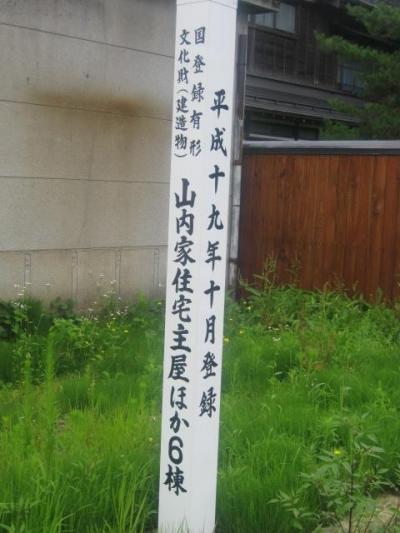 平成十九年十月登録
国登録有形
文化財(建造物)
山内家住宅主屋ほか6棟